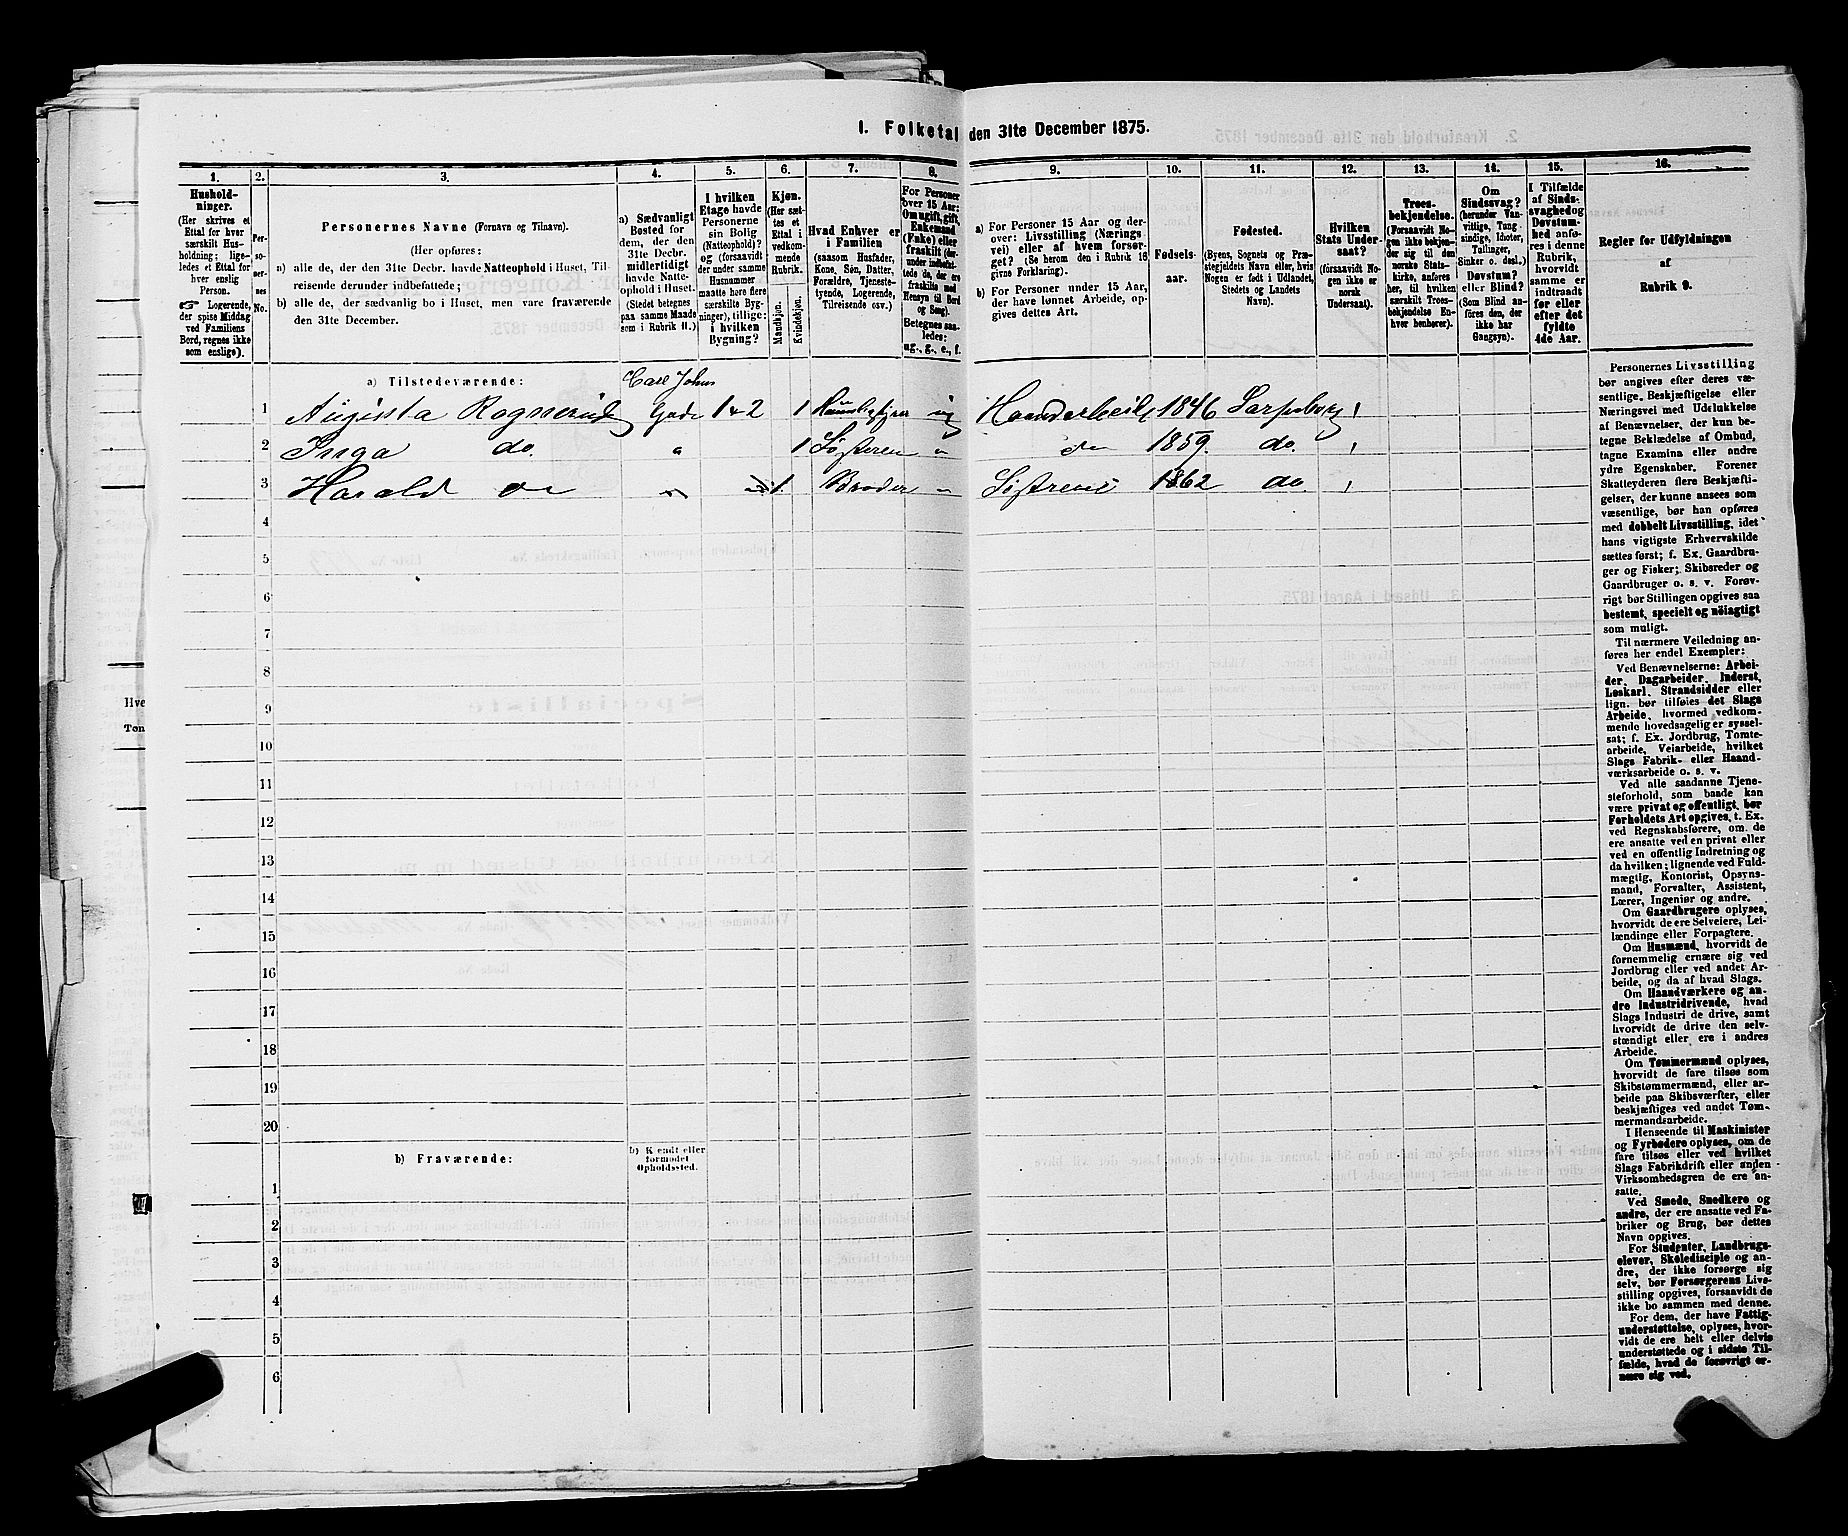 1. Folketal den 31te December 1875.
1. 2. 3. 4. 5. 6. 7. 8. 9. 10. 11. 12. 13. 14. 15. 16.
Hushold-
ninger.
(Her skrives et
Ettal for hver
særskilt Hus-
holdning; lige-
ledes et Ettal for
hver enslig
Person.
☞ Logerende,
der spise Middag
ved Familiens
Bord, regnes ikke
som enslige).
Per-
so-
ner-
nes
No.
Personernes Navne (Fornavn og Tilnavn).
(Her opføres:
a) alle de, der den 31te Decbr. havde Natteophold i Huset, Til-
reisende derunder indbefattede;
b) alle de, der sædvanlig bo i Huset, men vare fraværende
den 31te December.
a) Sædvanligt
Bosted for
dem, der den
31te Decbr.
midlertidigt
havde Natte-
ophold i Huset.
(Stedet betegnes
paa samme Maade
som i Rubrik 11.)
I hvilken
Etage havde
Personerne
sin Bolig
(Natteophold)?
og (forsaavidt
der under samme
Husnummer
maatte høre flere
særskilte Byg-
ninger), tillige:
i hvilken
Bygning?
Kjøn.
(Her sæt-
tes et
Ettal i
vedkom-
mende
Rubrik.
Mandkjøn.
Kvindekjøn.
Hvad Enhver er
i Familien
(saasom Husfader,
Kone, Søn, Datter,
Forældre, Tjeneste-
tyende, Logerende,
Tilreisende osv.)
For Personer
over 15 Aar:
Om ugift, gift,
Enkemand
(Enke) eller
fraskilt (der-
under indbefat-
tede de, der ere
fraskilte med
Hensyn til Bord
og Seng).
Betegnes saa-
ledes:
ug., g., e., f.
a) For Personer 15 Aar og der-
over: Livsstilling (Nærings
vei) eller af hvem forsør-
get? (Se herom den i Rubrik 16
givns Forklaring).
b) For Personer under 15 Aar,
der have lønnet Arbeide, op-
gives dettes Art.
Fødsels-
aar.
Fødested.
(Byens, Sognets og Præ-
stegjeldets Navn eller, hvis
Nogen er født i Udlandet,
Stedets og Landets
Navn).
Hvilken
Stats Under-
saat?
(forsaavidt No-
gen ikke er
norsk
Undersaat).
Troes-
bekjendelse.
(Forsaavidt No-
gen ikke bekjen-
der sig til den
norske Stats-
kirke, anføres
her, til hvilken
særskilt Troes-
bekjendelse En-
hver henhører).
Om
Sindssvag?
(herunder Van-
vittige, Tung-
sindige, Idioter,
Tullinger,
Sinker o. desl.)
Døvstum?
eller Blind?
(Som Blind an-
føres den, der
ikke har
Gangsyn).
I Tilfælde
af Sinds-
svaghed og
Døvstum-
hed anfø-
res i denne
Rubrik,
hvorvidt
samme er
indtraadt
før eller
efter det
fyldte
4de Aar.
Regler for Udfyldningen
af
Rubrik 9.
a) Tilstedeværende:
Carl Johns
1 Augusta Gade 1 & 2 1 ug 1846 Sarpsborg
2 Inga do. " 1 Søsteren " 1859. do.
3 Harald " 1. Broder " 1862 do.
4
5
6
7
8
9
10
11
12
13
14
15
16
17
18
19
20
b) Fraværende:
b) Kendt eller
formodet
Opholdssted.
1
2
3
4
5
6
Personernes Livsstilling
bør angives efter deres væ-
sentlige. Beskjæftigelse eller
Næringsvei med Udelukkelse
af Benævnelser, der kun be-
tegne Beklædelse af Ombud,
tagne Examina eller andre
ydre Egenskaber. Forener
Skatteyderen flere Beskjæfti-
gelser, der kunne ansees som
væsentlige, bør han opføres
med dobbelt Livsstilling, idet
hans vigtigste Erhvervskilde
sættes først; f. Ex. Gaardbru-
ger og Fisker; Skibsreder og
Gaardbruger o. s. v. Forøv-
rigt bør Stillingen opgives saa
bestemt, specielt og nöiagtigt
som muligt.
Til nærmere Veiledning an-
føres her endel Exempler:
Ved Benævnelserne: Arbei-
der, Dagarbeider, Inderst,
Løskarl, Strandsidder eller
lign. bør tilføies det Slags
Arbeide, hvormed vedkom-
mende hovedsagelig er syssel-
sat; f. Ex. Jordbrug, Tomte-
arbeide, Veiarbeide, hvilket
Slags Fabrik- eller Haand-
værksarbeide o. s. v.
Ved alle saadanne Tjene-
steforhold, som baade kan
være privat og offentligt, bør
Forholdets Art opgives, t. Ex.
ved Regnskabsførere, om de
ere ansatte ved en privat eller
ved en offentlig Indretning og
da hvilken; lignende ved Fuld-
mægtig, Kontorist, Opsyns-
mand, Forvalter, Assistent,
Lærer, Ingeniør og andre.
Om Gaardbrugere oplyses,
hvorvidt de ere Selveiere, Lei-
lændinge eller Forpagtere.
Om Husmænd, hvorvidt de
fornemmelig ernære sig ved
Jordbrug eller ved andet Ar-
beide, og da af hvad Slags.
Om Haandværkere og an-
dre Industridrivende, hvad
Slags Industri de drive, samt
hvorvidt de drive den selv-
stændigt eller ere i andres
Arbeide.
Om Tømmermænd oplyses,
hvorvidt de fare tilsøs som
Skibstømmermænd, eller ar-
beide paa Skibsværfter, eller
beskjæftiges ved andet Tøm-
mermandsarbeide.
I Henseende til Maskinister
og Fyrbødere oplyses, om de
fare tilsøs eller ved hvilket
Slags Fabrikdrift eller anden
Virksomhedsgren de ere an-
satte.
Ved Smede, Snedkere og
andre, der ere ansatte ved Fa-
briker og Brug, bør dettes
Navn opgives.
For Studenter, Landbrugs-
elever, Skoledisciple og an-
dre, der ikke forsørge sig
selv, bør Forsørgerens Livs-
stilling opgives, forsaavidt de
ikke bo sammen med denne.
For dem, der have Fattig-
understøttelse, oplyses, hvor-
vidt de ere helt eller delvis
understøttede og i sidste Til-
fælde, hvad de forøvrigt er-
nære sig ved.